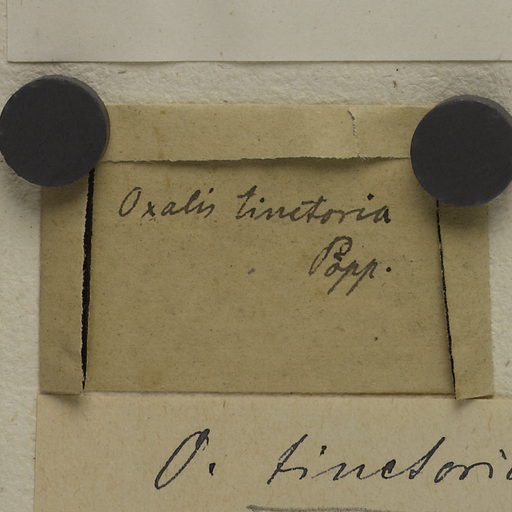 Oxalis tinctoria
Pöpp.
O. tinctori